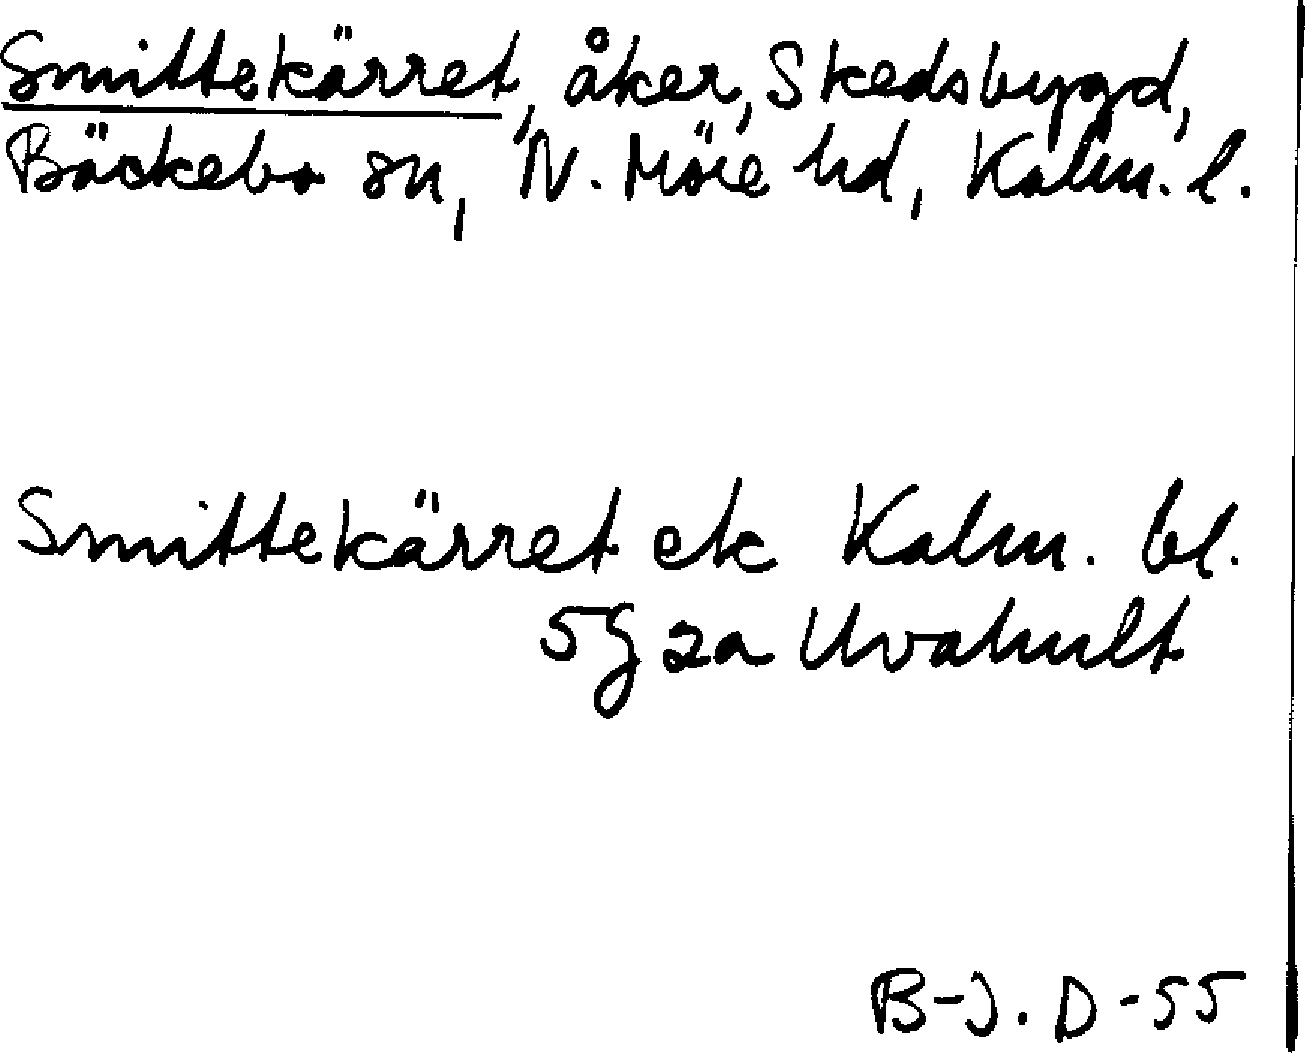 Smittekärret, åker, Skedsbygd,
Bäckebo sn, N. Möre hd, Kalm. l.
Smittekärret ek Kalm. bl.
5g 2a Uvahult
B-J. D-55